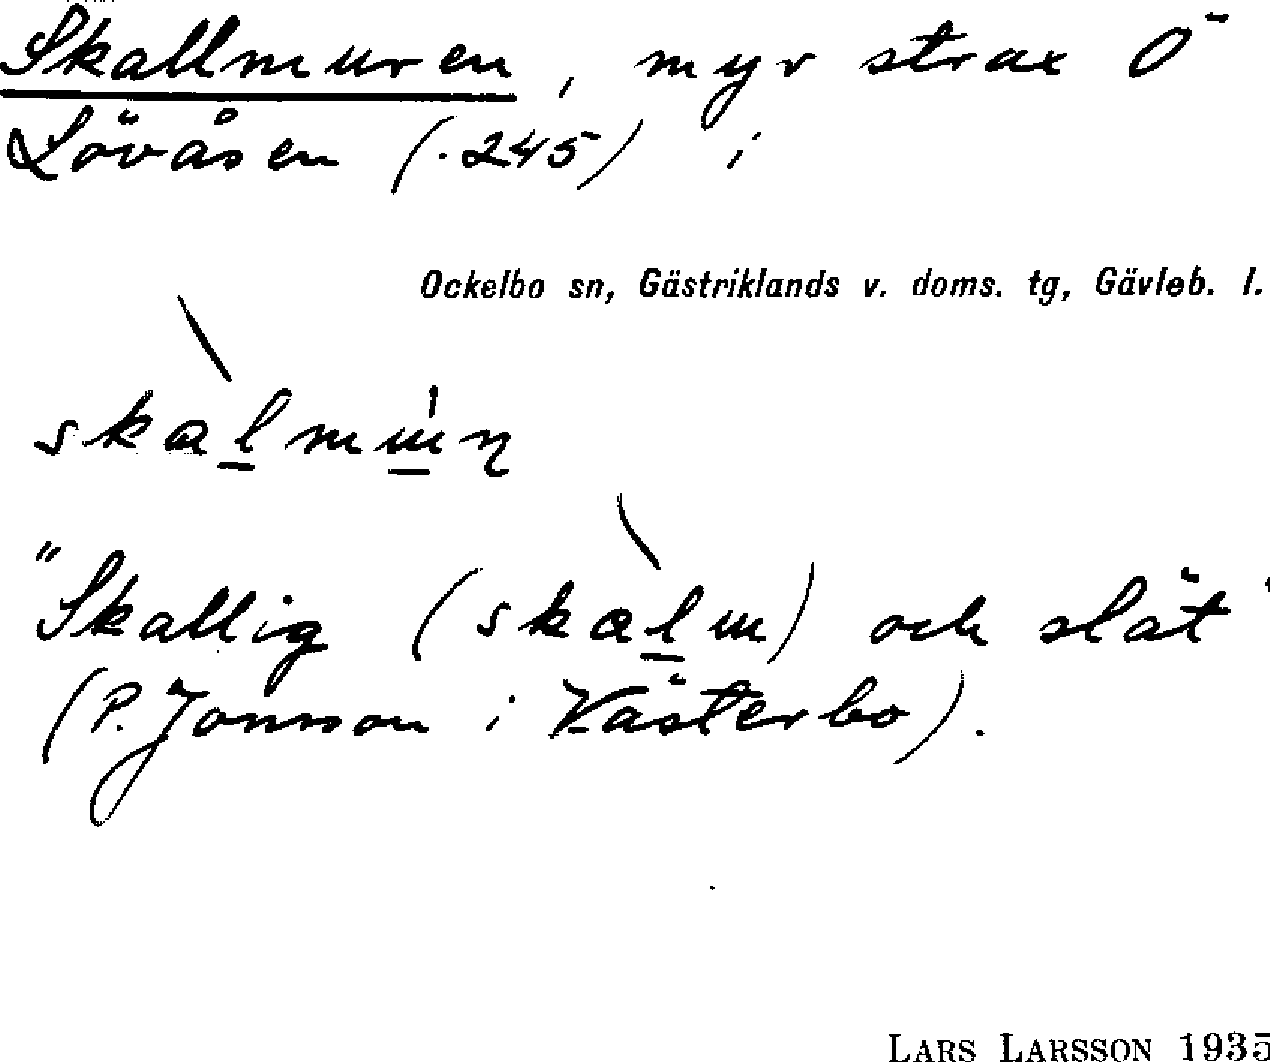 Skallmuren, myr strax Ö
Lövåsen (.245) i
Ockelbo sn, Gästriklands v. doms. tg, Gävleb. l.
"Skallig (skalm) och slät"
(P. Jonsson i Västerbo).
LARS LARSSON 1935